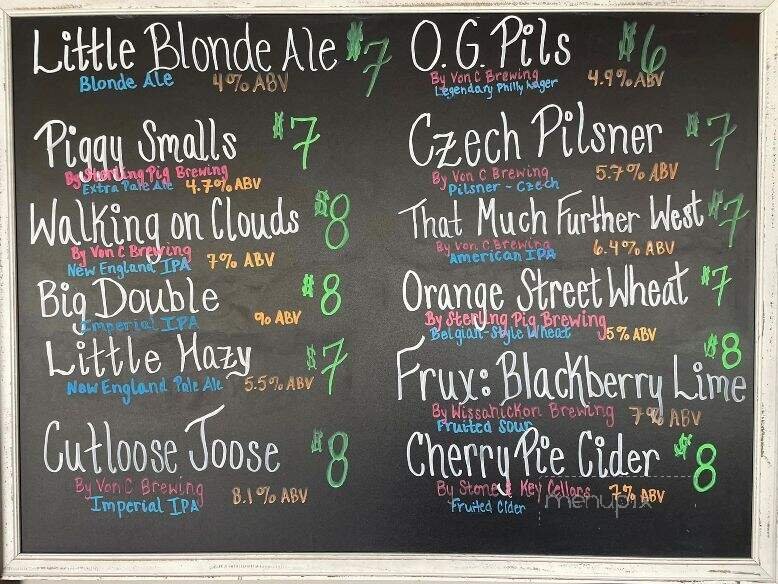 Little Blonde Ale $7
Blonde Ale 4% ABV
Piggy Smalls $7
By Sterling Pig Brewing
Extra Pale Ale 4.7% ABV
Walking on Clouds $8
By Von C Brewing
New England IPA 7% ABV
Big Double $8
Imperial IPA % ABV
Little Hazy $7
New England Pale Ale 5.5% ABV
Cutloose Joose $8
By Von C Brewing
Imperial IPA 8.1% ABV
O.G. Pils $6
By Von C Brewing
Legendary Philly Lager 4.9% ABV
Czech Pilsner $7
By Von C Brewing 5.7% ABV
Pilsner - Czech
That Much Further West $7
By Von C Brewing 6.4% ABV
American IPA
Orange Street Wheat $7
By Sterling Pig Brewing
Belgian-Style Wheat 5% ABV
Frux: Blackberry Lime $8
By Wissahickon Brewing 7% ABV
Fruited Sour
Cherry Pie Cider $8
By Stone & Key Cellars 7% ABV
Fruited Cider
menupix